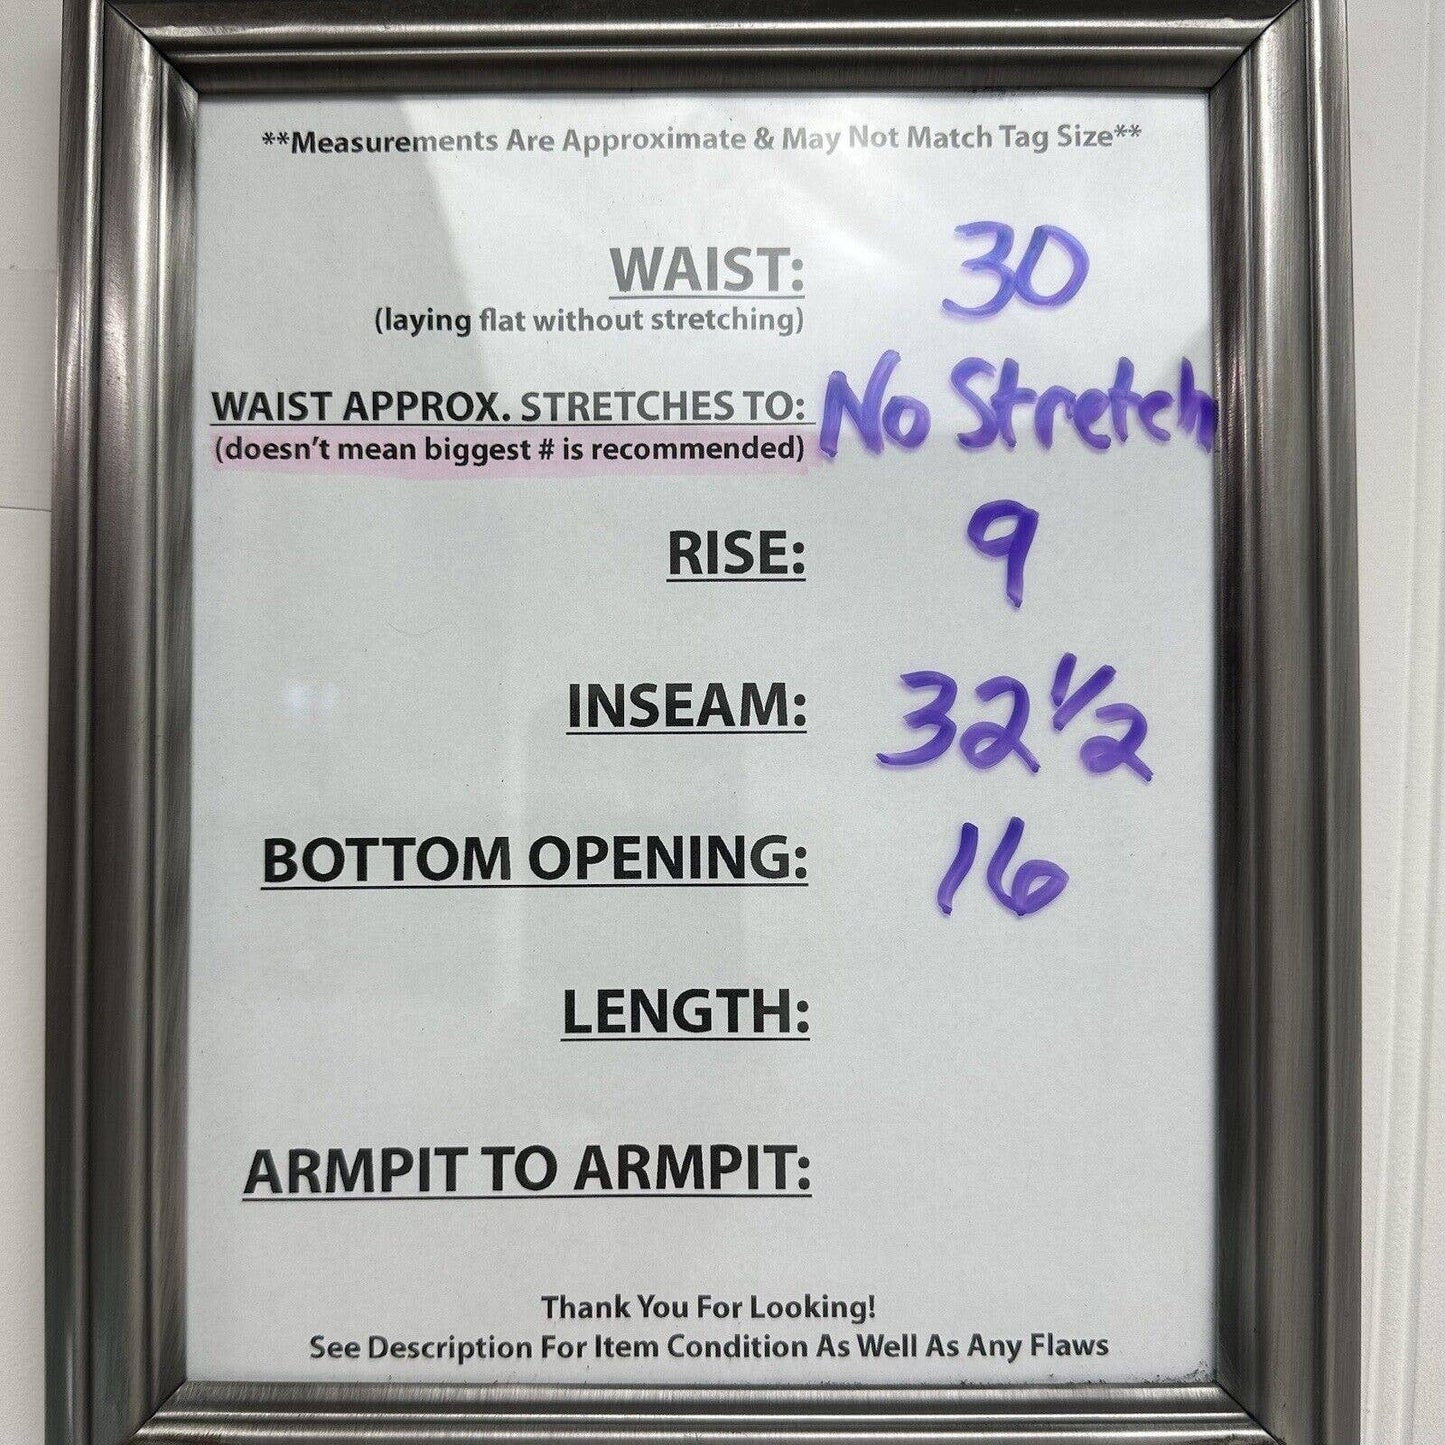 **Measurements Are Approximate & May Not Match Tag Size**
WAIST: 30
(laying flat without stretching)
WAIST APPROX. STRETCHES TO: No Stretch
(doesn't mean biggest # is recommended)
RISE: 9
INSEAM: 32 1/2
BOTTOM OPENING: 16
LENGTH:
ARMPIT TO ARMPIT:
Thank You For Looking!
See Description For Item Condition As Well As Any Flaws